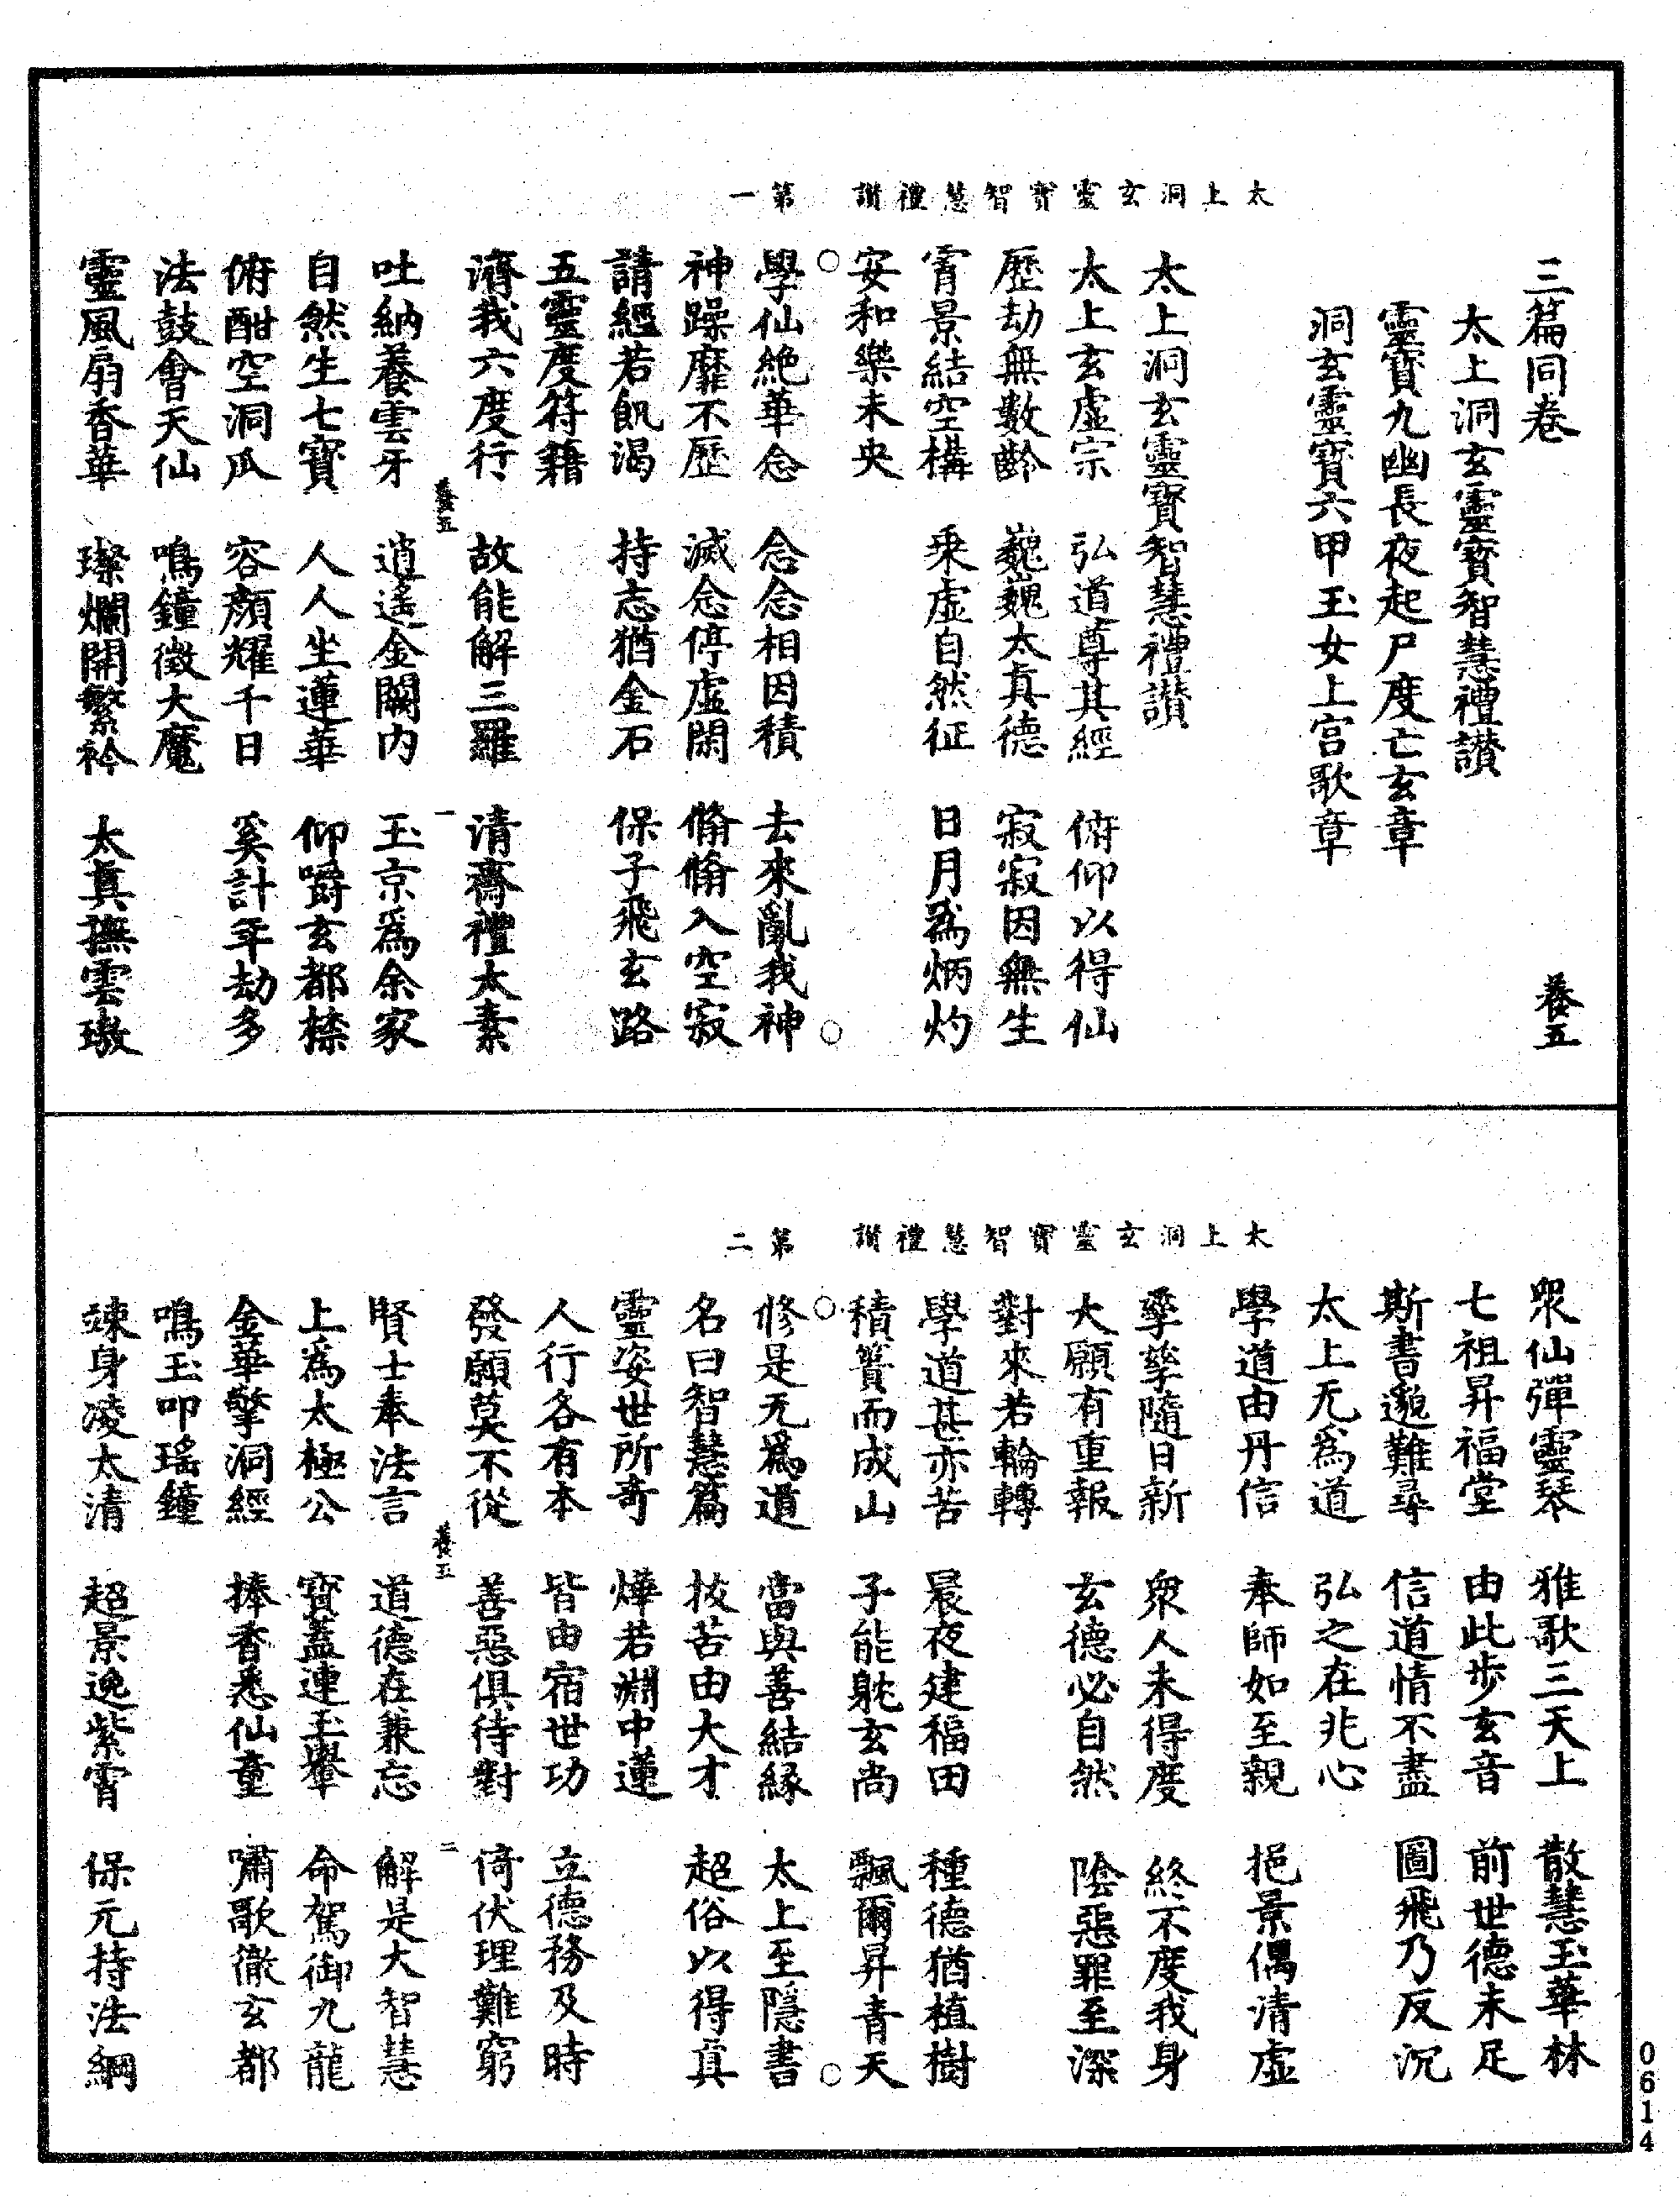 三篇同卷　養五
太上洞玄靈寶智慧禮讃
靈寶九幽長夜起尸度亡玄章
洞玄靈寶六甲玉女上宮歌章
太上洞玄靈寶智慧禮讃
太上玄虛宗　弘道尊其經　俯仰以得仙
歷劫無數齡　巍巍太真德　寂寂因無生
霄景結空構　乘虛自然征　日月爲炳灼
安和樂未央
太上洞玄靈寶智慧禮讃　第一
學仙絶華念　念念相因積　去來亂我神
神躁靡不歷　滅念停虛閑　翛翛入空寂
請經若飢渴　持志猶金石　保子飛玄路
五靈度符籍
濟我六度行　故能解三羅　清齋禮太素
養五　一
吐納養雲牙　逍遙金闕内　玉京爲余家
自然生七寶　人人坐蓮華　仰嚼玄都㮈
俯酣空洞瓜　容顔耀千日　奚計年劫多
法鼓會天仙　鳴鐘徵大魔
靈風扇香華　璨爛開繁衿　太真撫雲璈
衆仙彈靈琴　雅歌三天上　散慧玉華林
七祖昇福堂　由此步玄音　前世德未足
斯書邈難尋　信道情不盡　圖飛乃反沉
太上无爲道　弘之在兆心
學道由丹信　奉師如至親　挹景偶清虛
孳孳隨日新　衆人未得度　終不度我身
大願有重報　玄德必自然　陰惡罪至深
對來若輪轉
學道甚亦苦　晨夜建福田　種德猶植樹
積簣而成山　子能躭玄尚　飄爾昇青天
太上洞玄靈寶智慧禮讃　第二
修是无爲道　當與善結緣　太上至隱書
名曰智慧篇　拔苦由大才　超俗以得真
靈姿世所奇　燁若淵中蓮
人行各有本　皆由宿世功　立德務及時
發願莫不從　善惡俱待對　倚伏理難窮
養五　二
賢士奉法言　道德在兼忘　解是大智慧
上爲太極公　寶蓋連玉轝　命駕御九龍
金華擎洞經　捧香悉仙童　嘯歌徹玄都
鳴玉叩瑤鐘
竦身凌太清　超景逸紫霄　保元持法綱
0614